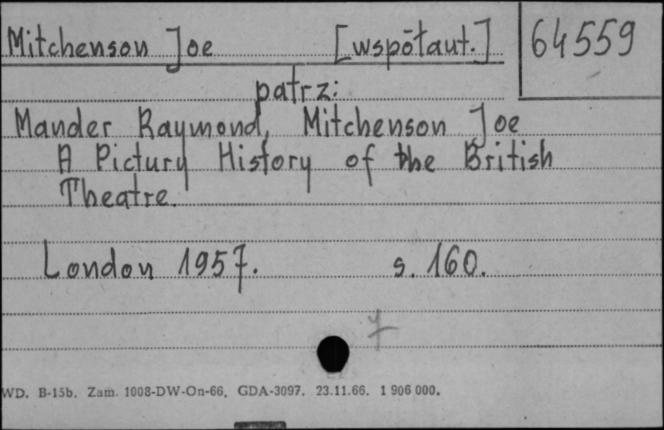 Mitchenson Joe [współaut.] 64559
patrz:
Mander Raymond, Mitchenson Joe
A Pictury History of the British
Theatre.
London 1957. s. 160.
WD. B-15b. Zam. 1008-DW-On-66. GDA-3097. 23.11.66. 1 906 000.